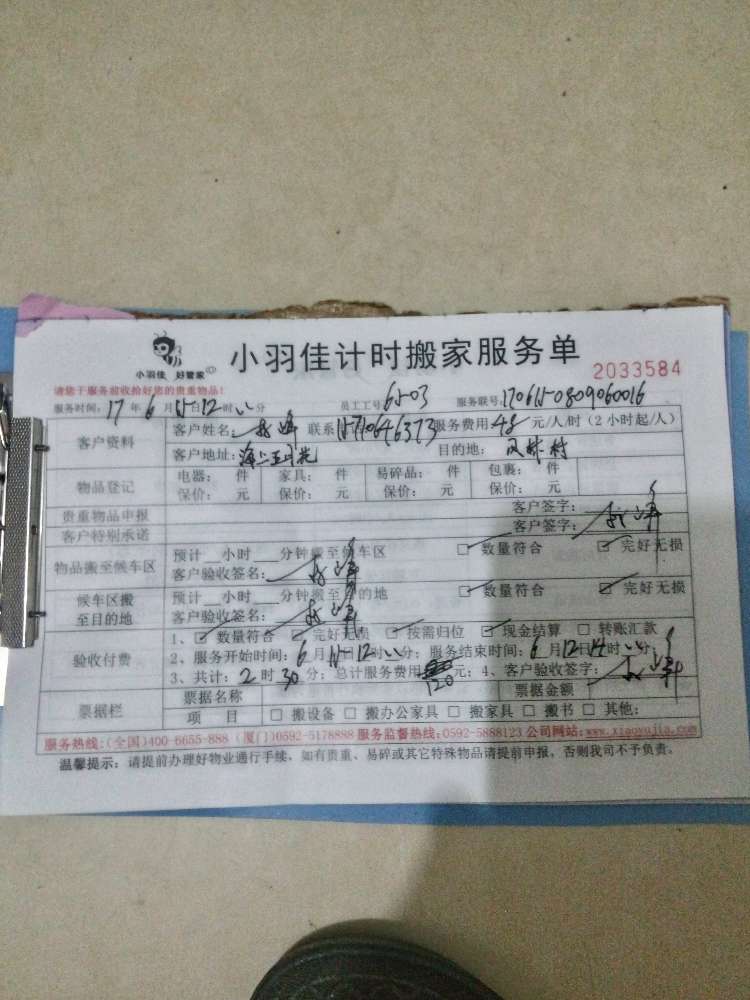 小羽佳 好管家
小羽佳计时搬家服务单
2033584
请您于服务前收拾好您的贵重物品!
服务时间: 17 年 6 月 日 12 时 分 员工工号 服务联号: 170615-0809060016
客户资料
客户姓名: 联系 服务费用 48 元/人/时(2小时起/人)
客户地址: 海上五月花 目的地: 凤林村
物品登记
电器: 件 家具: 件 易碎品: 件 包裹: 件
保价: 元 保价: 元 保价: 元 保价: 元
贵重物品申报 客户签字:
客户特别承诺 客户签字:
物品搬至候车区
预计 小时 分钟搬至候车区 □ 数量符合 □ 完好无损
客户验收签名:
候车区搬至目的地
预计 小时 分钟搬至目的地 □ 数量符合 □ 完好无损
客户验收签名:
验收付费
1、□ 数量符合 □ 完好无损 □ 按需归位 □ 现金结算 □ 转账汇款
2、服务开始时间: 6 月 日 12 时 分; 服务结束时间: 6 月 日 14 时 分;
3、共计: 2 时 30 分; 总计服务费用 120 元; 4、客户验收签字:
票据栏
票据名称 票据金额
项 目 □ 搬设备 □ 搬办公家具 □ 搬家具 □ 搬书 □ 其他:
服务热线:(全国)400-6655-888 (厦门)0592-5178888 服务监督热线:0592-5888123 公司网站:www.xiaoyujia.com
温馨提示: 请提前办理好物业通行手续,如有贵重、易碎或其它特殊物品请提前申报,否则我司不予负责。